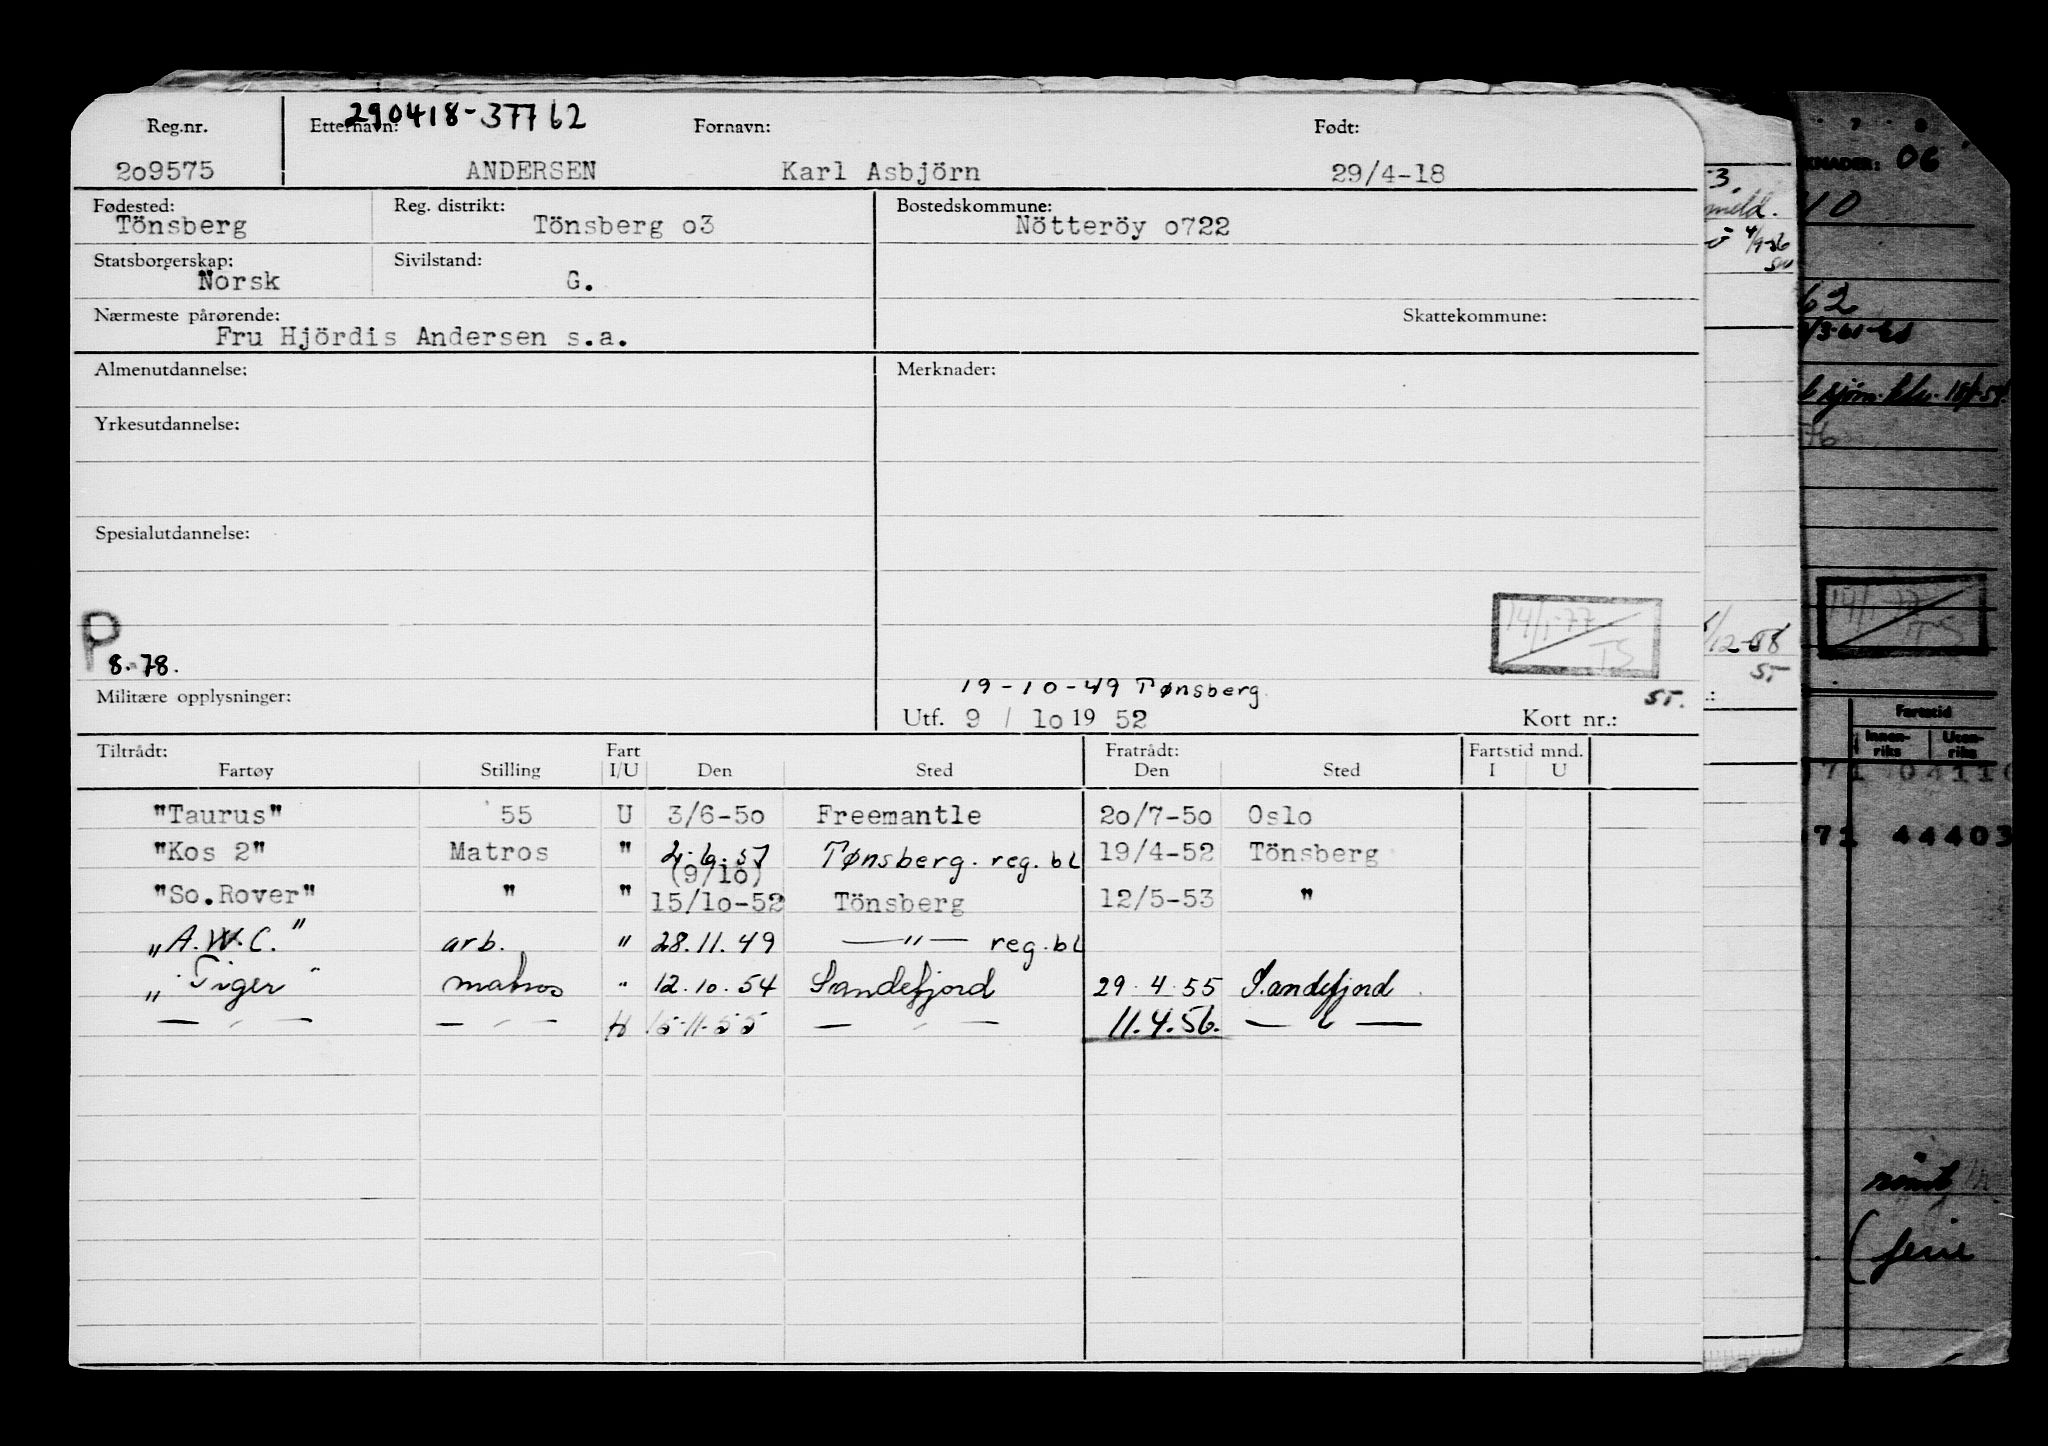 290418-37762
Reg.nr. Etternavn: Fornavn: Født:
209575 ANDERSEN Karl Asbjörn 29/4-18
Fødested: Reg. distrikt: Bostedskommune:
Tönsberg Tönsberg o3 Nötteröy o722
Statsborgerskap: Sivilstand:
Norsk G.
Nærmeste pårørende: Skattekommune:
Fru Hjördis Andersen s.a.
Almenutdannelse: Merknader:
Yrkesutdannelse:
Spesialutdannelse:
14/1-77
TS
P
8.78.
19-10-49 Tønsberg
Militære opplysninger: ST.
Utf. 9 / 1o 19 52 Kort nr.:
Tiltrådt: Fart Fratrådt: Fartstid mnd.
Fartøy Stilling I/U Den Sted Den Sted I U
"Taurus" 55 U 3/6-5o Freemantle 2o/7-5o Oslo
"Kos 2" Matros " Tønsberg. reg. bl 19/4-52 Tönsberg
(9/1o)
"So.Rover" " " 15/1o-52 Tönsberg 12/5-53 "
"A.W.C." arb. " 28.11.49 —"— reg. bl
"Tiger" matros " 12.10.54 Sandefjord 29.4.55 Sandefjord
— " — — " — 15-11-55 — " — 11.4.56. — " —
KNADER: 06
10
62
14/1-77
TS
12-58
ST
Fartstid
Innen-
riks
Uten-
riks
71 04110
71 44403